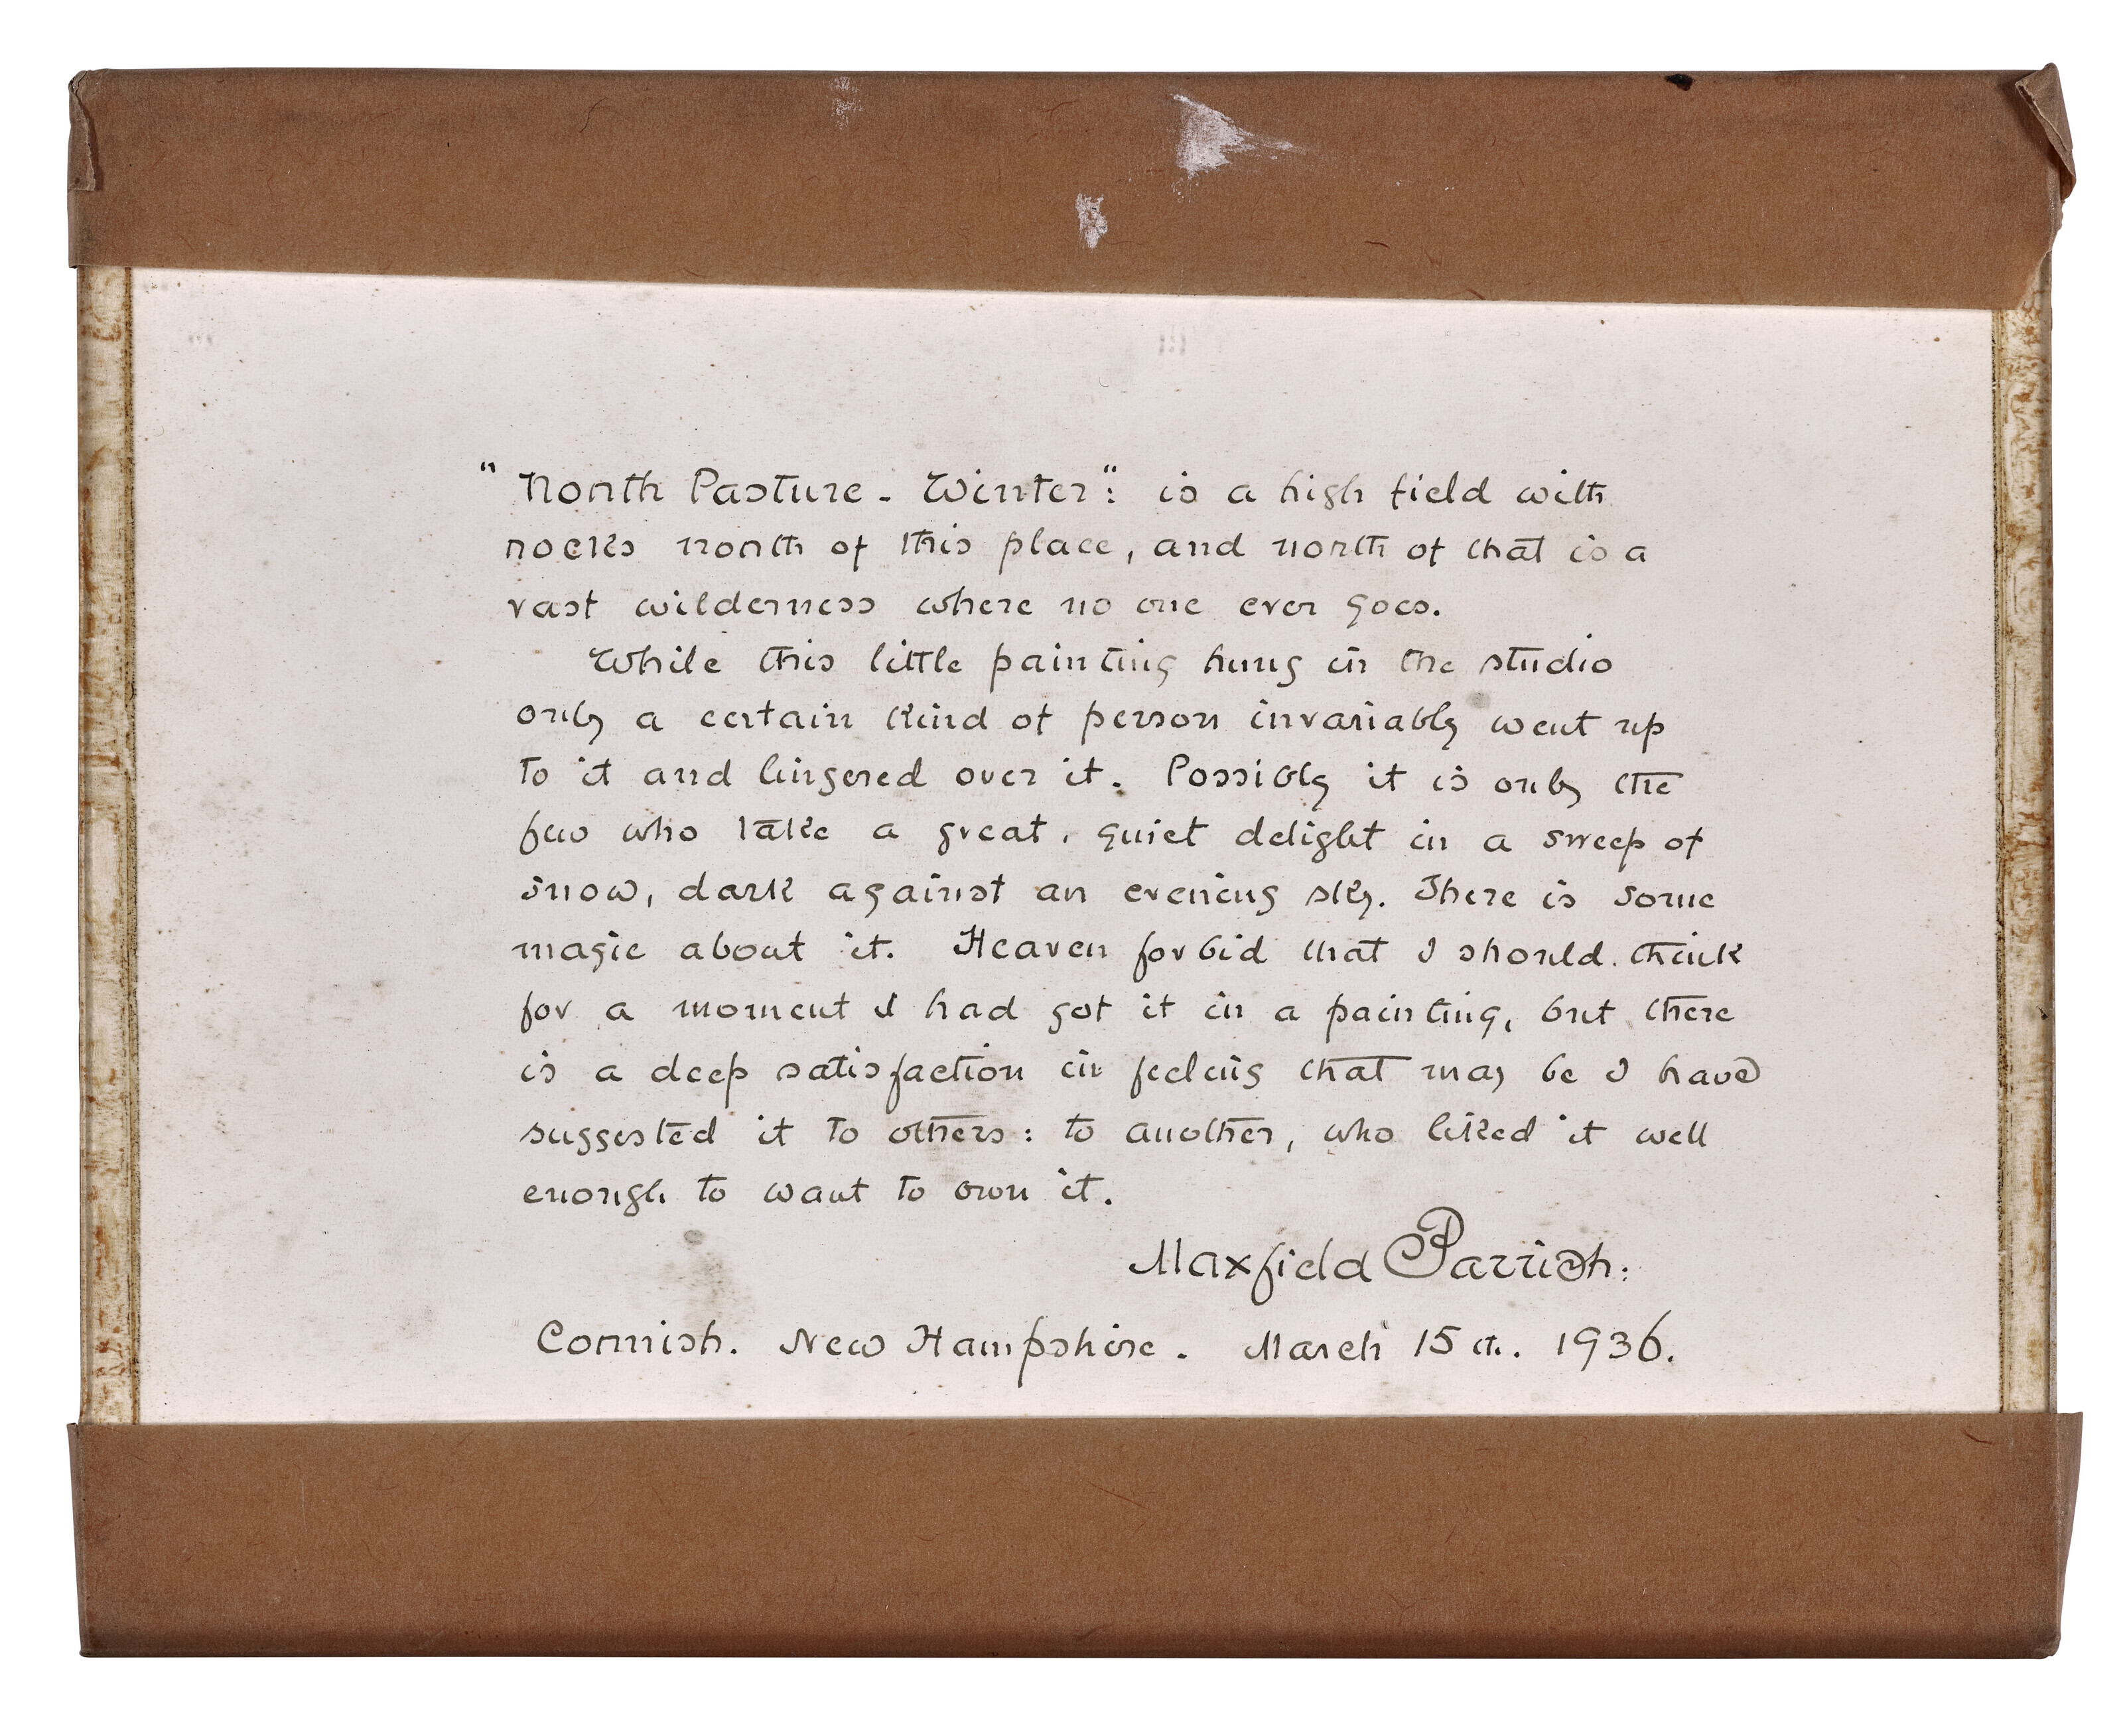 "North Pasture - Winter": is a high field with
rocks north of this place, and north of that is a
vast wilderness where no one ever goes.
While this little painting hung in the studio
only a certain kind of person invariably went up
to it and lingered over it. Possibly it is only the
few who take a great, quiet delight in a sweep of
snow, dark against an evening sky. There is some
magic about it. Heaven forbid that I should think
for a moment I had got it in a painting, but there
is a deep satisfaction in feeling that may be I have
suggested it to others: to another, who liked it well
enough to want to own it.
Maxfield Parrish:
Cornish. New Hampshire. March 15th. 1936.